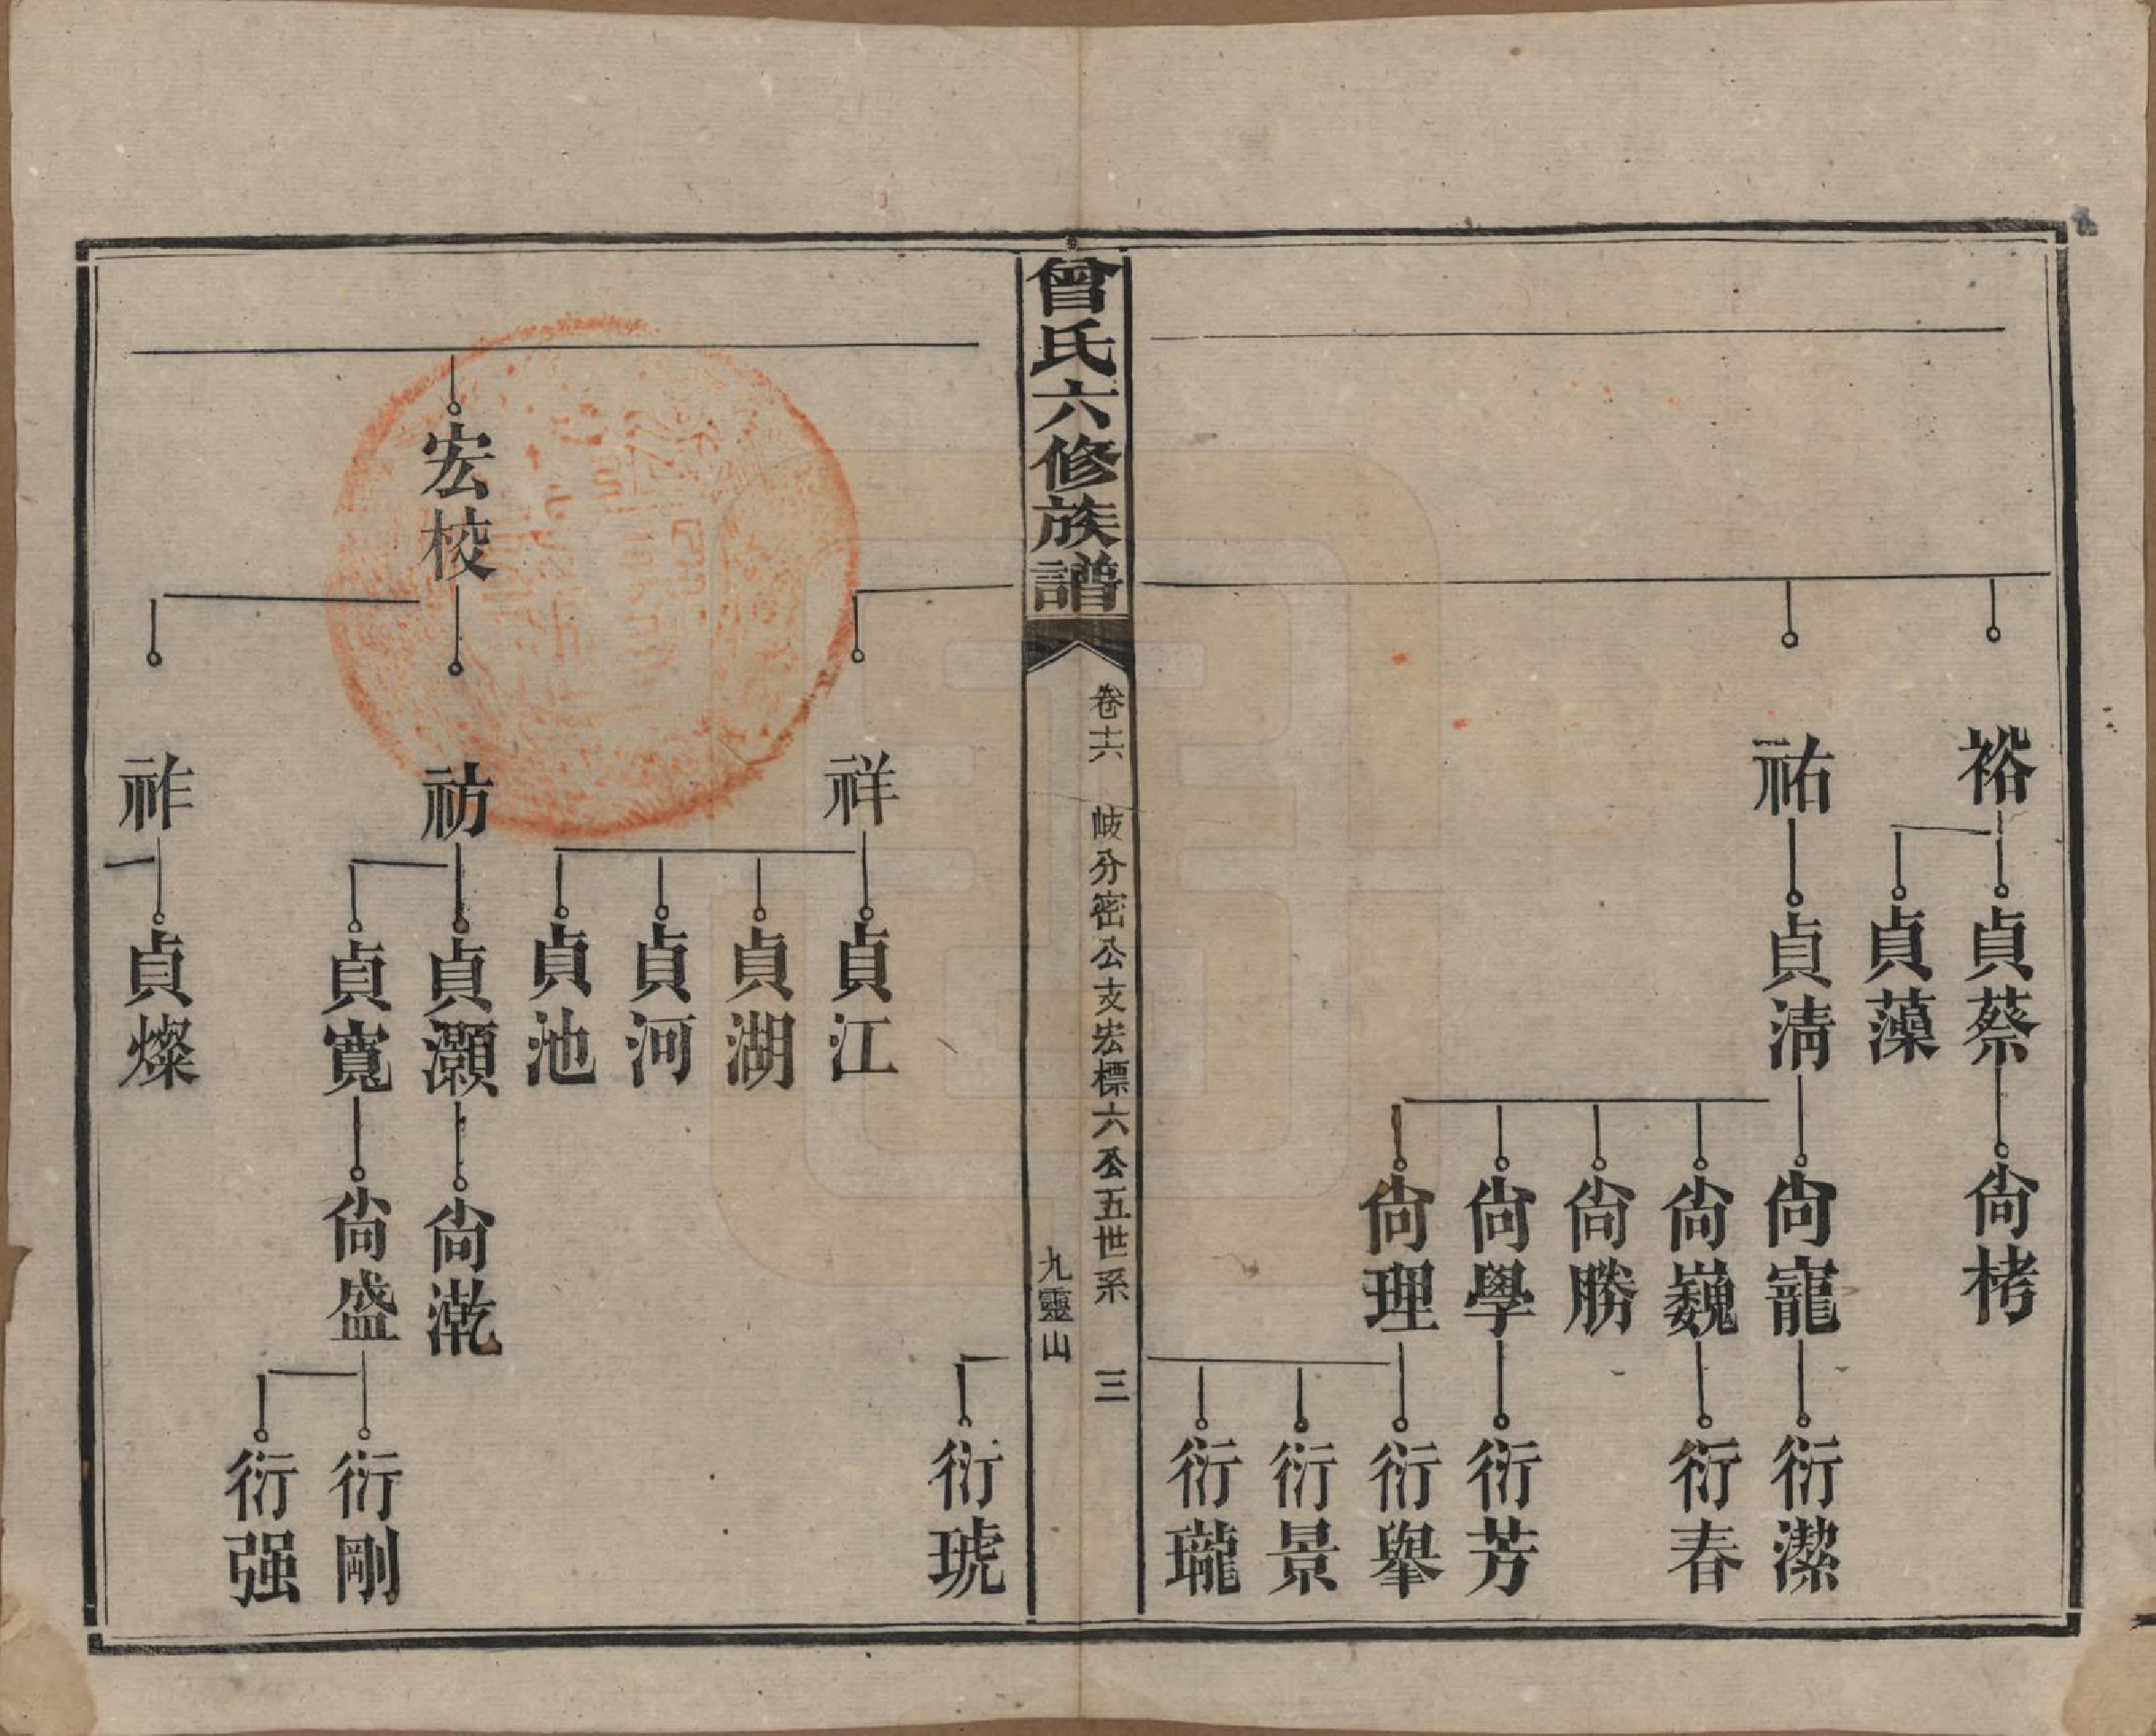 裕
貞蔡
尙栲
貞藻
祐
貞淸
尙寵
衍潔
尙巍
衍春
尙勝
尙學
衍芳
尙理
衍擧
衍景
衍瓏
曾氏六修族譜
卷十六
岐分密公支宏標六公五世系
三
九靈山
衍琥
祥
貞江
貞湖
貞河
貞池
宏校
祊
貞灝
尙漧
貞寬
尙盛
衍剛
衍强
祚
貞燦